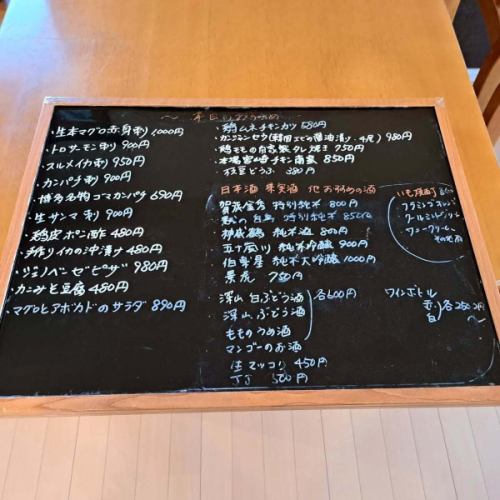 〜 本日のおすすめ 〜
・生本マグロ赤身刺 1000円
・トロサーモン刺 900円
・スルメイカ刺 950円
・カンパチ刺 900円
・博多名物ゴマカンパチ 690円
・生サンマ刺 900円
・鶏皮ポン酢 480円
・手作りイカの沖漬け 480円
・ジェノベーゼピザ 980円
・カニみそ豆腐 480円
・マグロとアボカドのサラダ 890円
・鶏ムネチキンカツ 680円
・カンジャンセウ(韓国エビの醤油漬け・4尾) 980円
・鶏ももの自家製タレ焼き 750円
・本場宮崎チキン南蛮 850円
・枝豆どうふ 380円
日本酒 果実酒 他 おすすめの酒
賀茂金秀 特別純米 800円
特別純米 850円
神蔵 純米酒 800円
五十嵐川 純米吟醸 900円
伯楽星 純米大吟醸 1000円
景虎 750円
深山 白ぶどう酒
深山 ぶどう酒
もものうめ酒
マンゴーのお酒
各600円
生マッコリ 450円
JJ 500円
いも焼酎
その他
ワインボトル
赤
白